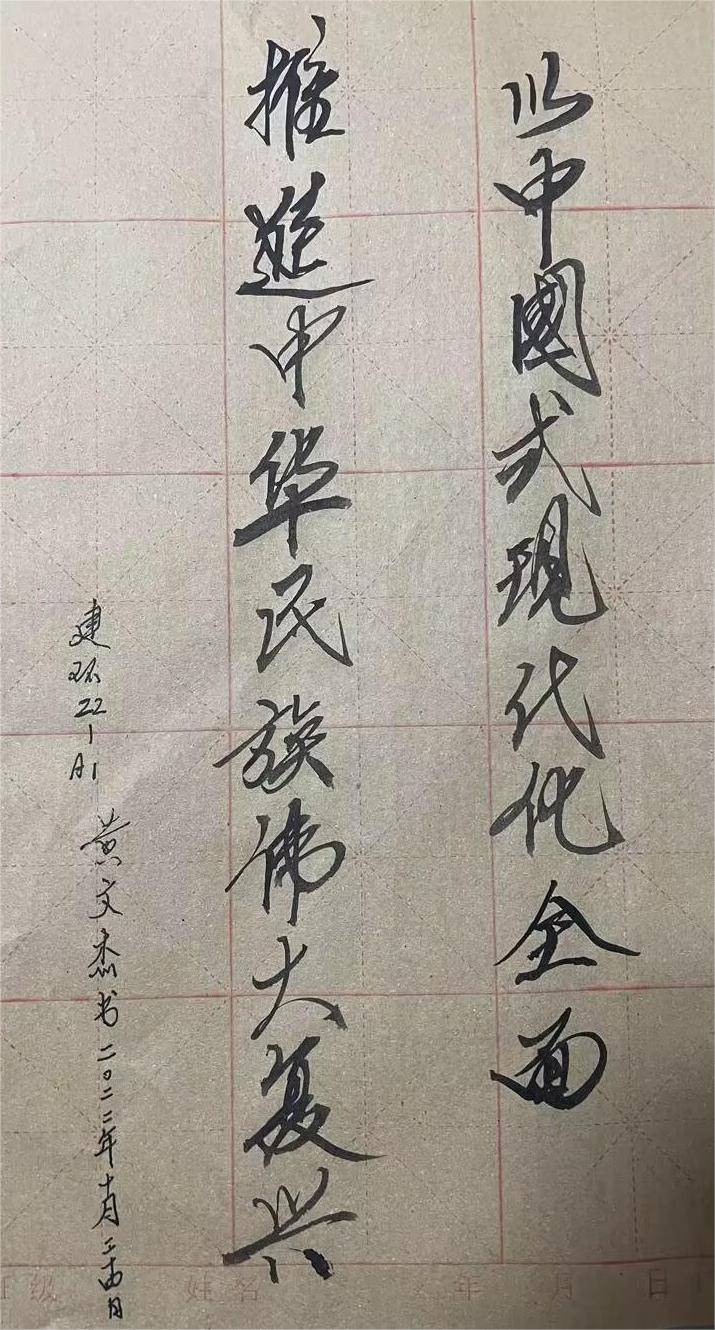 以中國式現代化全面
推進中华民族伟大复兴
建环22-A1 黄文杰书二〇二二年十月二十四日
班级 姓名 年 月 日